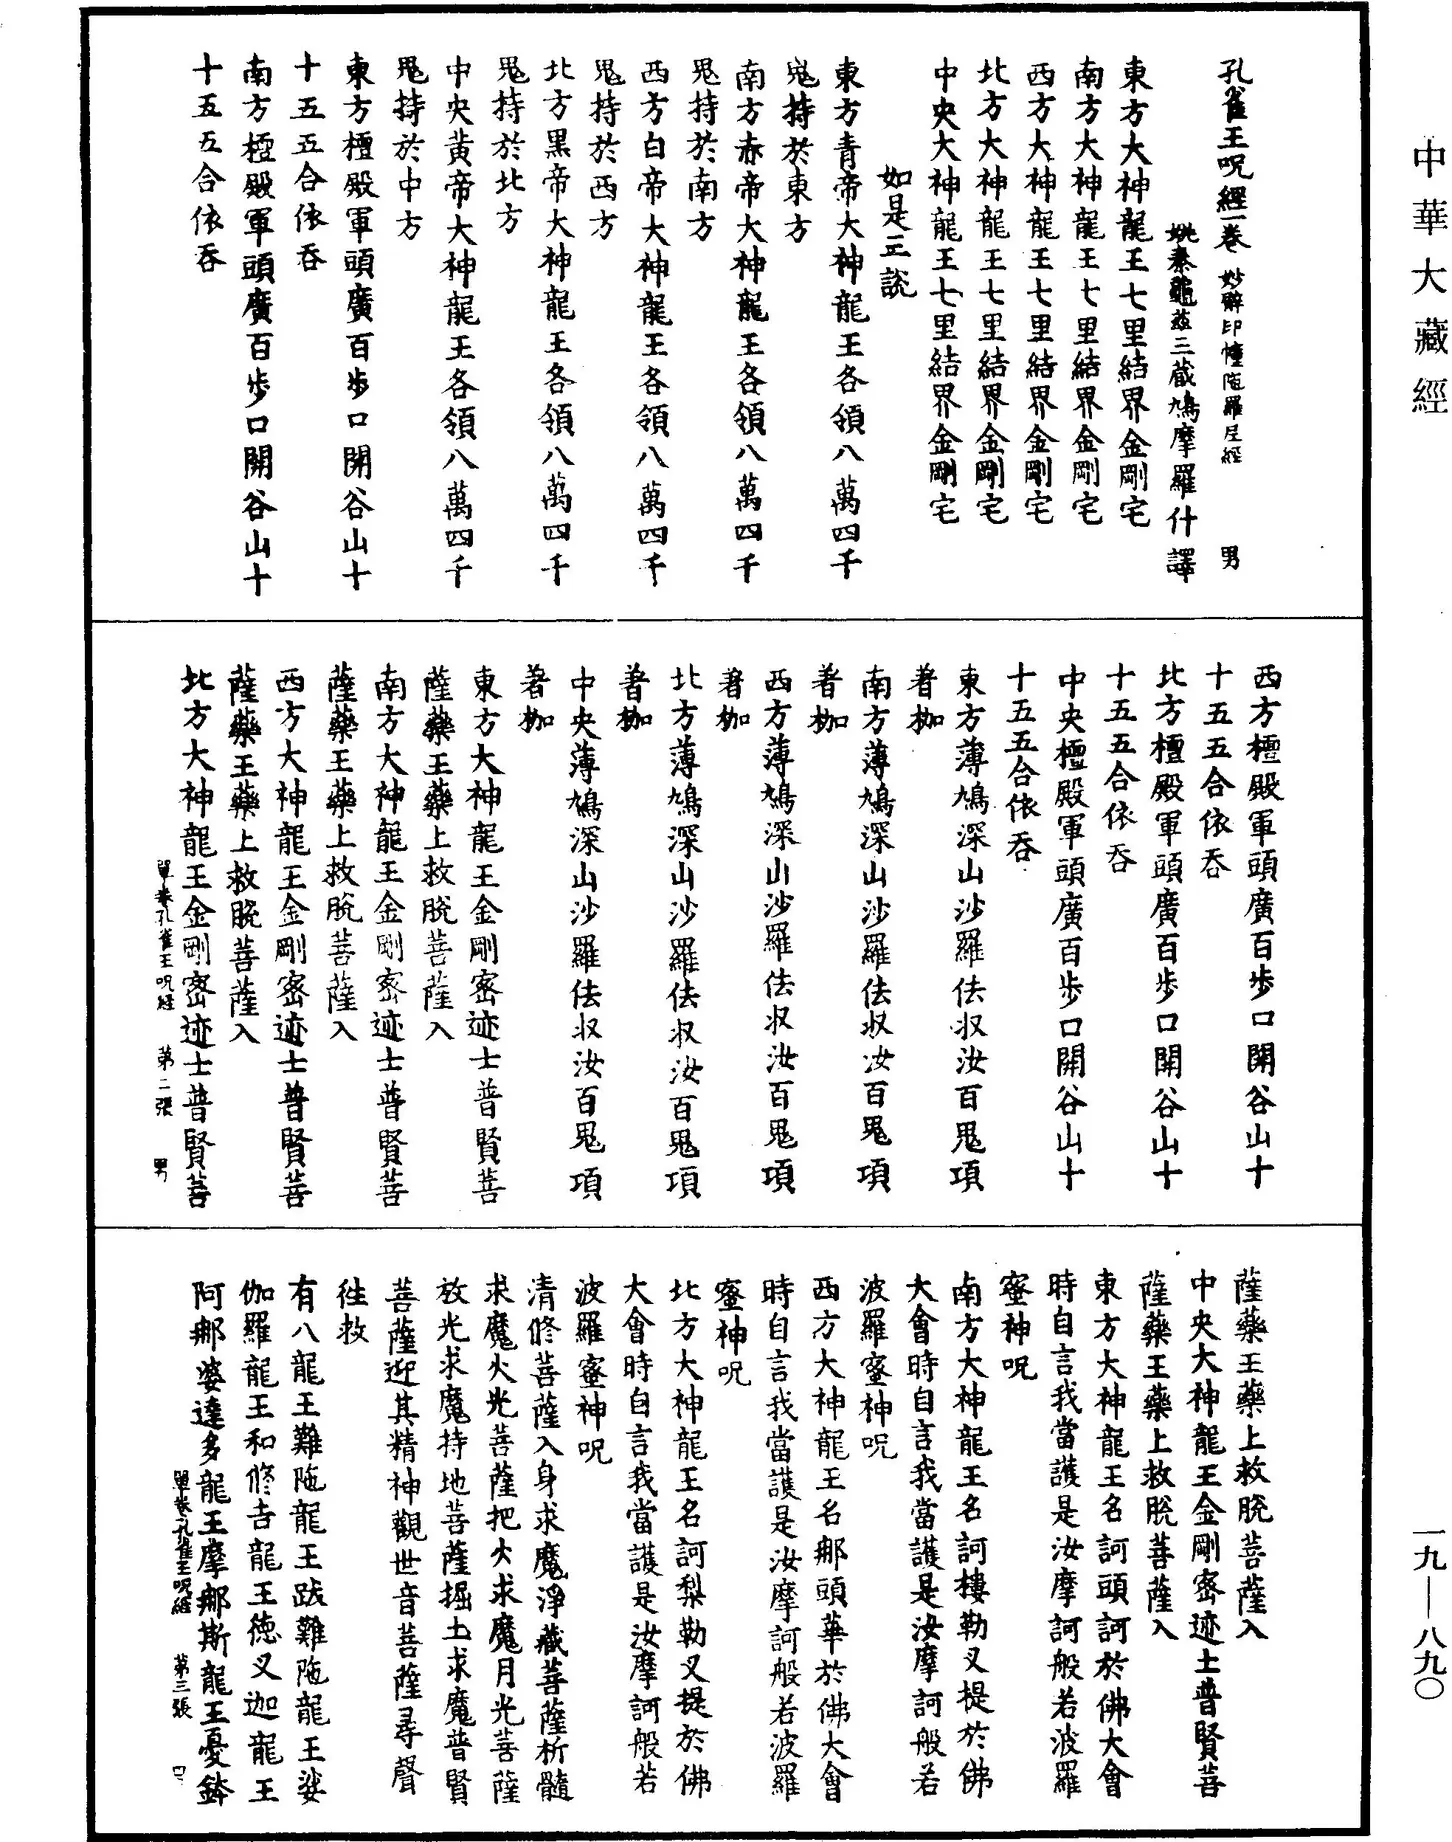 中華大藏經
孔雀王呪經一卷 妙辯印幢陁羅尼經 男
姚秦龜茲三藏鳩摩羅什譯
東方大神龍王七里結界金剛宅
南方大神龍王七里結界金剛宅
西方大神龍王七里結界金剛宅
北方大神龍王七里結界金剛宅
中央大神龍王七里結界金剛宅
如是三說
東方青帝大神龍王各領八萬四千
鬼持於東方
南方赤帝大神龍王各領八萬四千
鬼持於南方
西方白帝大神龍王各領八萬四千
鬼持於西方
北方黑帝大神龍王各領八萬四千
鬼持於北方
中央黃帝大神龍王各領八萬四千
鬼持於中方
東方檀殿軍頭廣百步口開谷山十
十五五合依吞
南方檀殿軍頭廣百步口開谷山十
十五五合依吞
西方檀殿軍頭廣百步口開谷山十
十五五合依吞
北方檀殿軍頭廣百步口開谷山十
十五五合依吞
中央檀殿軍頭廣百步口開谷山十
十五五合依吞
東方薄鳩深山沙羅佉收汝百鬼項
著枷
南方薄鳩深山沙羅佉收汝百鬼項
著枷
西方薄鳩深山沙羅佉收汝百鬼項
著枷
北方薄鳩深山沙羅佉收汝百鬼項
著枷
中央薄鳩深山沙羅佉收汝百鬼項
著枷
東方大神龍王金剛密迹士普賢菩
薩藥王藥上救脫菩薩入
南方大神龍王金剛密迹士普賢菩
薩藥王藥上救脫菩薩入
西方大神龍王金剛密迹士普賢菩
薩藥王藥上救脫菩薩入
北方大神龍王金剛密迹士普賢菩
單卷孔雀王呪經 第二張 男
薩藥王藥上救脫菩薩入
中央大神龍王金剛密迹士普賢菩
薩藥王藥上救脫菩薩入
東方大神龍王名訶頭訶於佛大會
時自言我當護是汝摩訶般若波羅
蜜神呪
南方大神龍王名訶樓勒叉提於佛
大會時自言我當護是汝摩訶般若
波羅蜜神呪
西方大神龍王名那頭華於佛大會
時自言我當護是汝摩訶般若波羅
蜜神呪
北方大神龍王名訶梨勒叉提於佛
大會時自言我當護是汝摩訶般若
波羅蜜神呪
清修菩薩入身求魔淨藏菩薩析髓
求魔火光菩薩把火求魔月光菩薩
放光求魔持地菩薩掘土求魔普賢
菩薩迎其精神觀世音菩薩尋聲
往救
有八龍王難陁龍王跋難陁龍王娑
伽羅龍王和修吉龍王德叉迦龍王
阿那婆達多龍王摩那斯龍王憂鉢
單卷孔雀王呪經 第三張
一九—八九〇